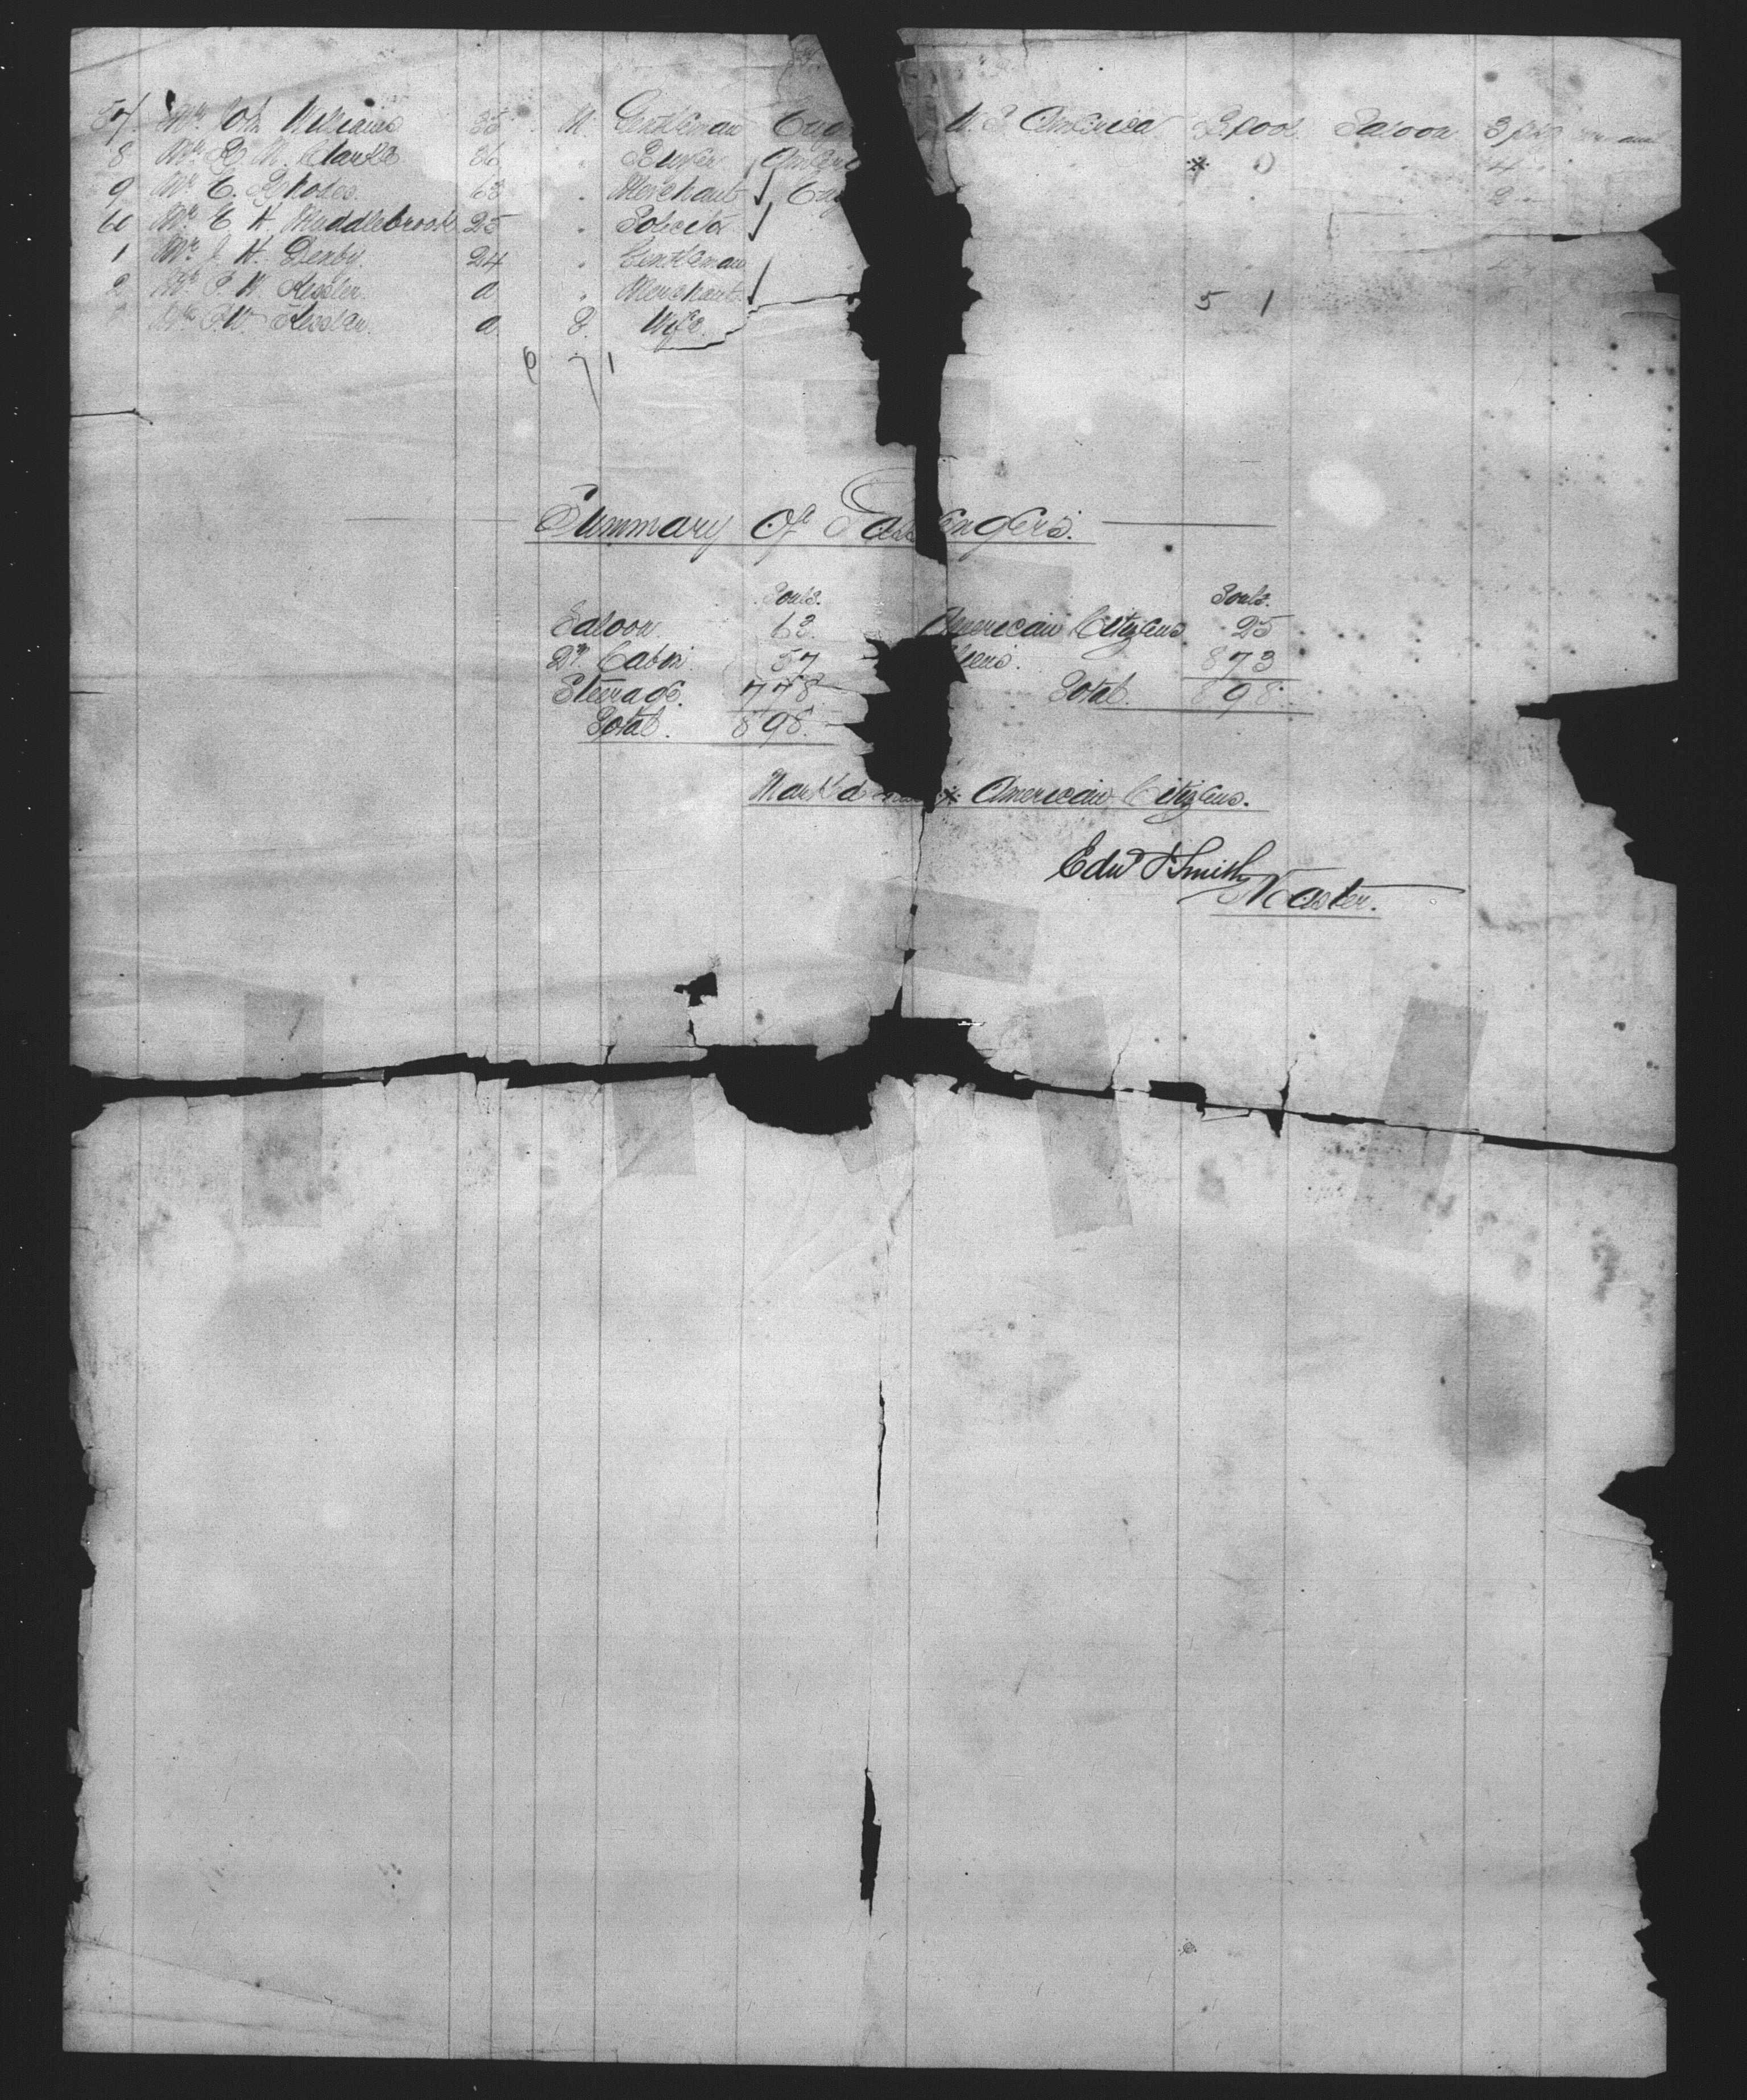 57. Mr. John Williams 35 M. Gentleman Eng U.S. America L'pool Saloon 3 pkg
8 Mr. R. M. Clarke 36 " * 4
9 Mr. C. Rhodes. 63 " Merchant Eng 2
60 Mr. E. H. Muddlebrook 25 "
1 Mr. J. H. Denby. 24 " Gentleman
2 Mr. P. W. Kessler. a " Merchant
Mrs. P. W. a Wife 5 1
6 1
Summary Of Pas engers.
Souls. Souls.
Saloon. 63. American Citizens 25
2nd. Cabin. 57 liens. 873
Steerage. 778 Total. 898.
Total. 898.
Mark'd * American Citizens.
Edw J Smith
Master.